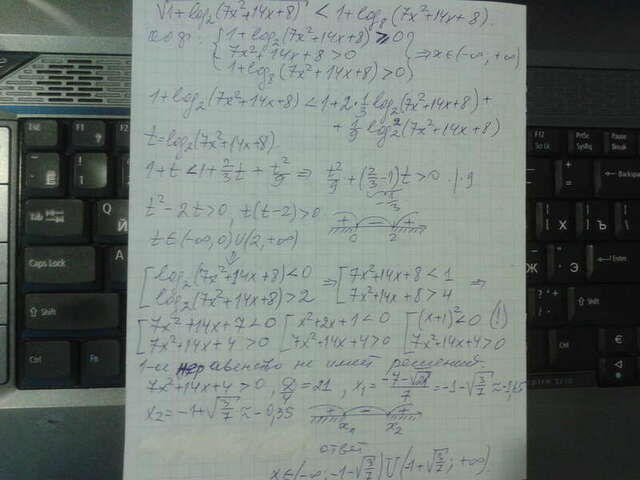 √1+log₂(7x²+14x+8) < 1+log₈(7x²+14x+8).
одз: { 1+log₂(7x²+14x+8) ≥ 0
7x²+14x+8 > 0 } ⇒ x∈(-∞, +∞)
1+log₈(7x²+14x+8) > 0
1+log₂(7x²+14x+8) < 1+2·1/3 log₂(7x²+14x+8) +
+ 1/9 log₂²(7x²+14x+8)
t = log₂(7x²+14x+8)
1+t < 1+ 2/3 t + t²/9 ⇒ t²/9 + (2/3 -1)t > 0 |·9
1/3
t²-2t>0, t(t-2)>0 + - +
0 2
t∈(-∞, 0)∪(2, +∞)
⇓
[ log₂(7x²+14x+8) < 0 ⇒ [ 7x²+14x+8 < 1 ⇒
log₂(7x²+14x+8) > 2 7x²+14x+8 > 4
[ 7x²+14x+7 < 0 [ x²+2x+1 < 0 [ (x+1)² < 0 (!)
7x²+14x+4 > 0 7x²+14x+4 > 0 7x²+14x+4 > 0
1-е неравенство не имеет решения
7x²+14x+4 > 0, D/4 = 21, x₁ = (-7-√21)/7 = -1-√3/7 ≈ -1,65
x₂ = -1+√3/7 ≈ -0,35 + - +
x₁ x₂
ответ
x∈(-∞; -1-√3/7) ∪ (-1+√3/7; +∞)
Esc
F1
Tab
Й
Caps Lock
Shift
Ctrl
Fn
F12
PrtSc
SysRq
Pause
Break
Backspace
Х
Ъ
Ж
Э
Enter
Shift
Ctrl